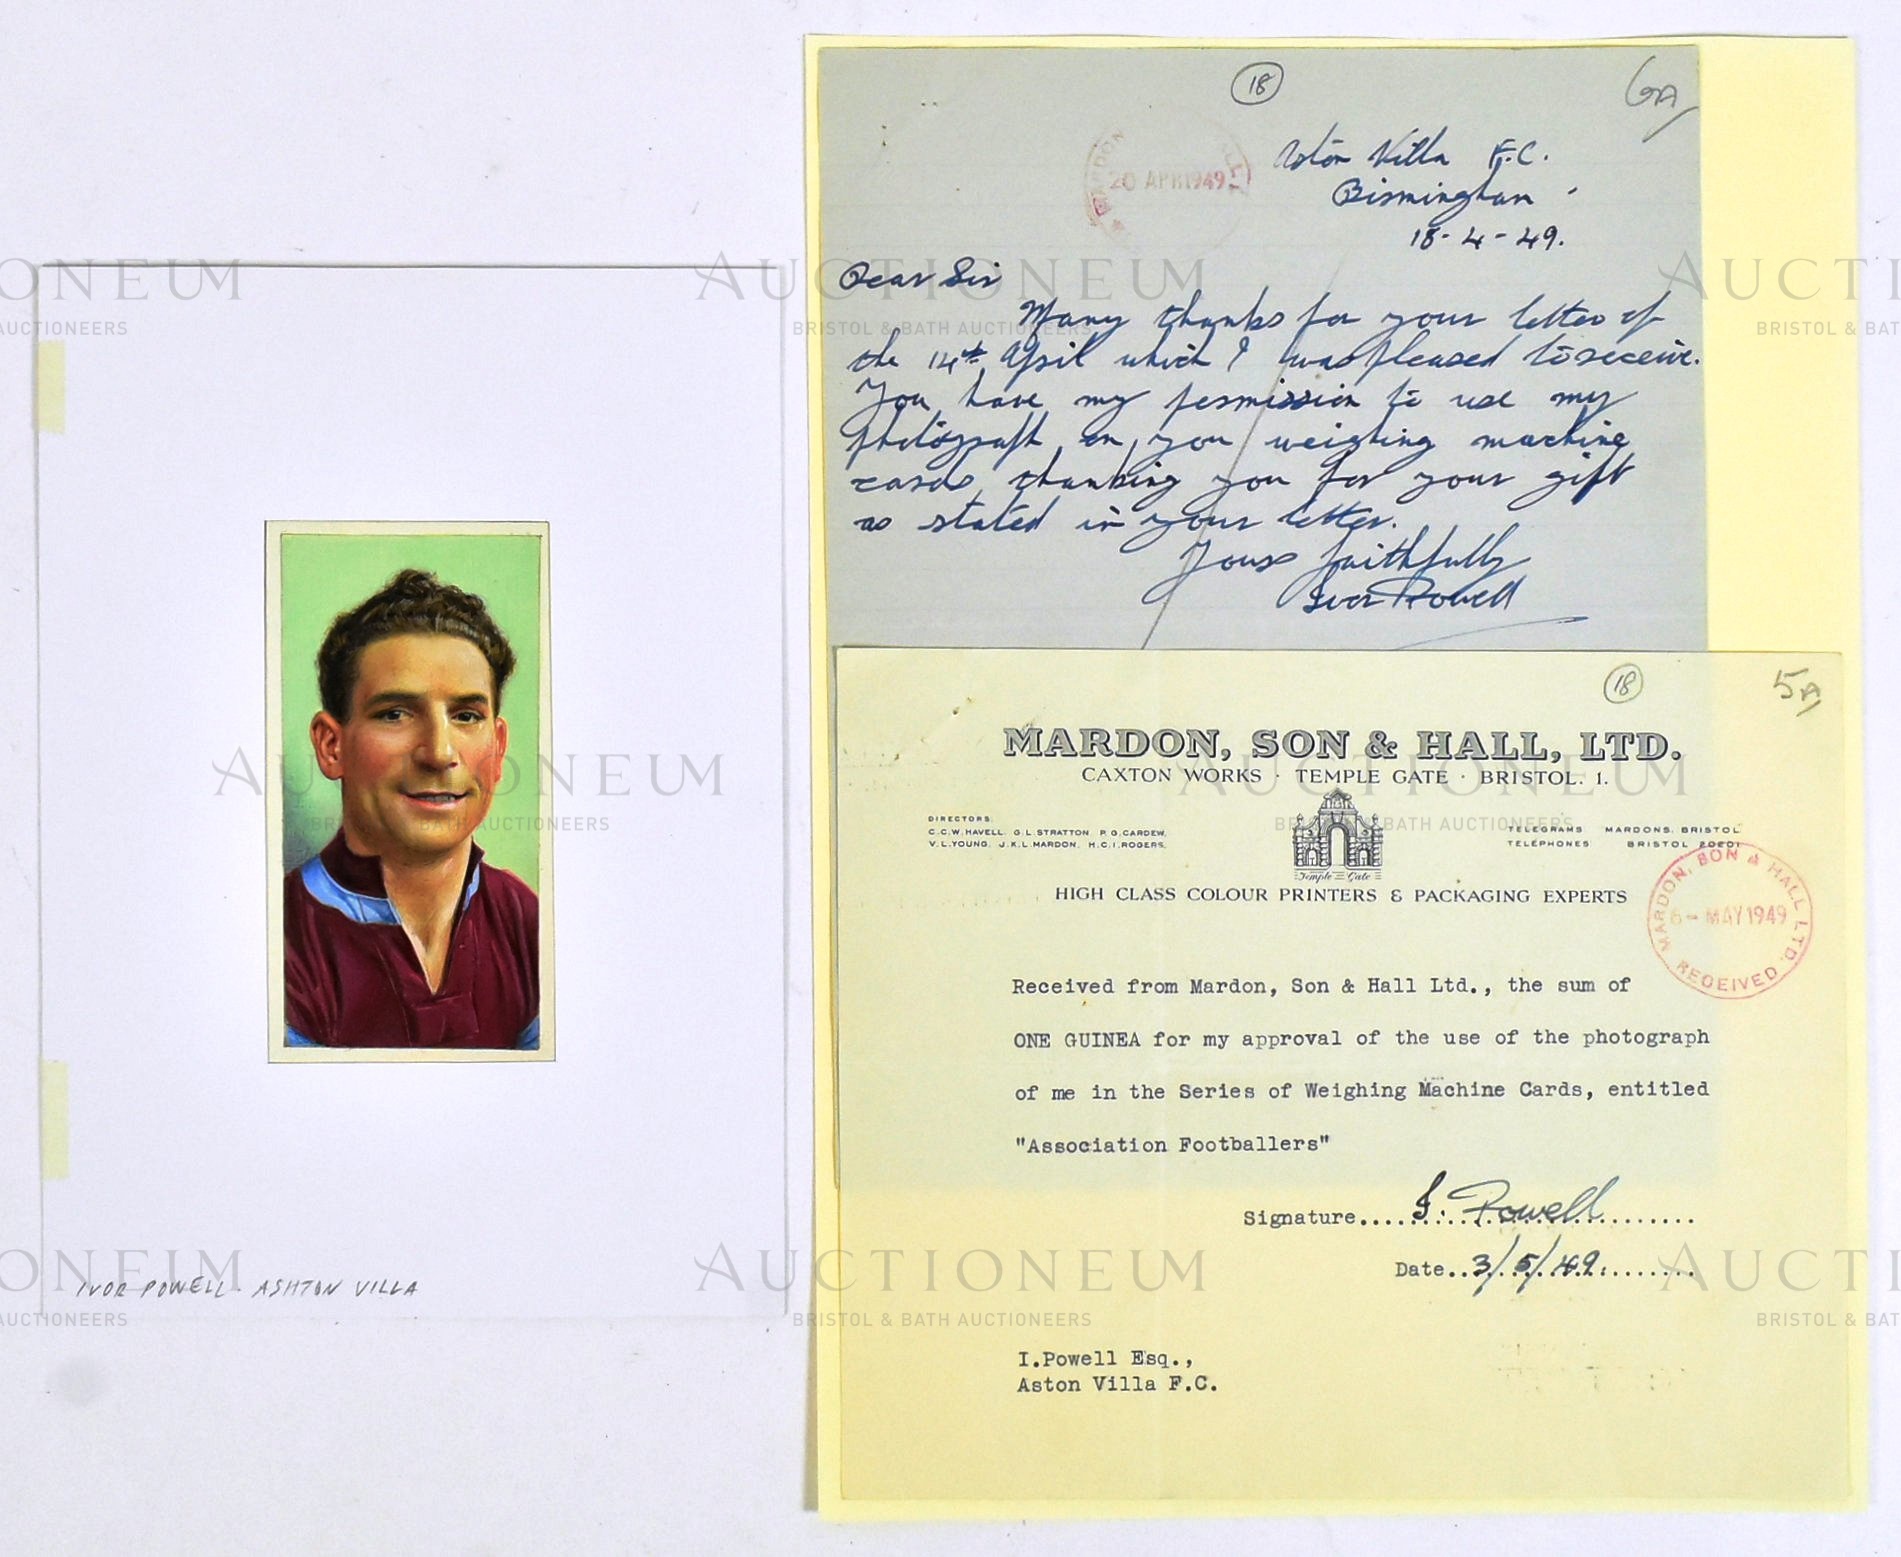 IVOR POWELL. ASHTON VILLA
18
6A
MARDON HALL
20 APR 1949
Aston Villa F.C.
Birmingham.
18-4-49.
Dear Sir
Many thanks for your letter of
the 14th April which I was pleased to receive.
You have my permission to use my
photograph on you weighing machine
cards, thanking you for your gift
as stated in your letter.
Yours faithfully
Ivor Powell
18
5A
MARDON, SON & HALL, LTD.
CAXTON WORKS · TEMPLE GATE · BRISTOL. 1.
DIRECTORS:
C.C.W. HAVELL. G.L. STRATTON. P.G. CARDEW.
V.L. YOUNG. J.K.L. MARDON. H.C.I. ROGERS.
TELEGRAMS MARDONS. BRISTOL
TELEPHONES BRISTOL 20201
Temple Gate
HIGH CLASS COLOUR PRINTERS & PACKAGING EXPERTS
MARDON, SON & HALL LTD.
6- MAY 1949
RECEIVED
Received from Mardon, Son & Hall Ltd., the sum of
ONE GUINEA for my approval of the use of the photograph
of me in the Series of Weighing Machine Cards, entitled
"Association Footballers"
Signature.....I. Powell.....
Date..3/5/49.........
I.Powell Esq.,
Aston Villa F.C.
AUCTIONEUM
BRISTOL & BATH AUCTIONEERS